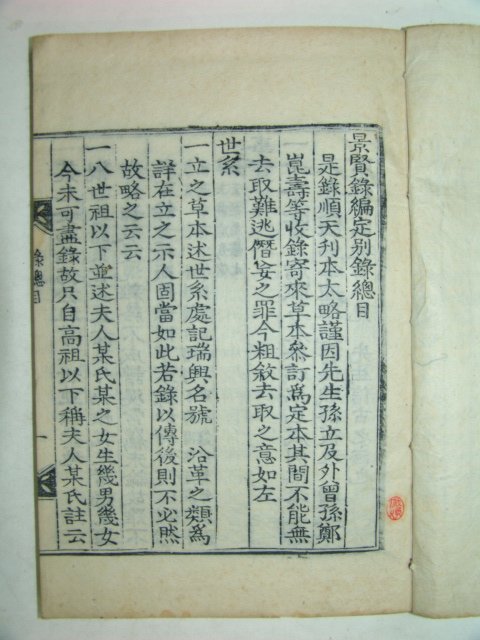 景賢錄編定別錄總目
是錄順天刋本太略謹因先生孫立及外曾孫鄭
崑壽等收錄寄來草本叅訂爲定本其間不能無
去取難逃僭妄之罪今粗敘去取之意如左
世系
一立之草本述世系處記瑞興名號 沿革之類爲
詳在立之示人固當如此若錄以傳後則不必然
故略之云云
一八世祖以下並述夫人某氏某之女生幾男幾女
今未可盡錄故只自高祖以下稱夫人某氏註云
錄總目
一